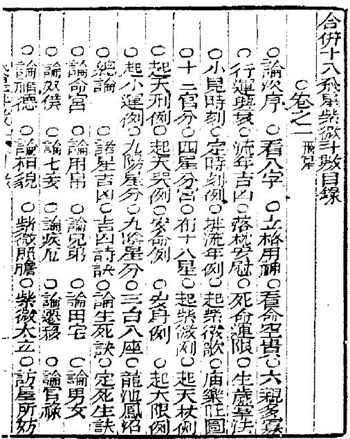 合併十八飛星紫微斗數目錄
○卷之一 飛星
○論次序 ○看八字 ○立格用神 ○看命空實 ○六親多寡
○行運興衰 ○流年吉凶 ○落枕安慰 ○死命運限 ○生歲掌法
○小兒時刻 ○定時刻例 ○排流年例 ○起紫微歌 ○廟樂旺圖
○十二宮分 ○四星分宮 ○布十八星 ○起紫微例 ○起天杖例
○起天刑例 ○起天哭例 ○安命例 ○安身例 ○起大限例
○起小運例 ○九陽星分 ○九陰星分 ○三台八座 ○龍池鳳閣
○總論 ○諸星吉凶 ○吉凶詩訣 ○論生死訣 ○定死生訣
○論命宮 ○論用帛 ○論兄弟 ○論田宅 ○論男女
○論奴僕 ○論七妾 ○論疾厄 ○論遷移 ○論官祿
○論福德 ○論相貌 ○紫微照膽 ○紫微太立 ○訪星所妨